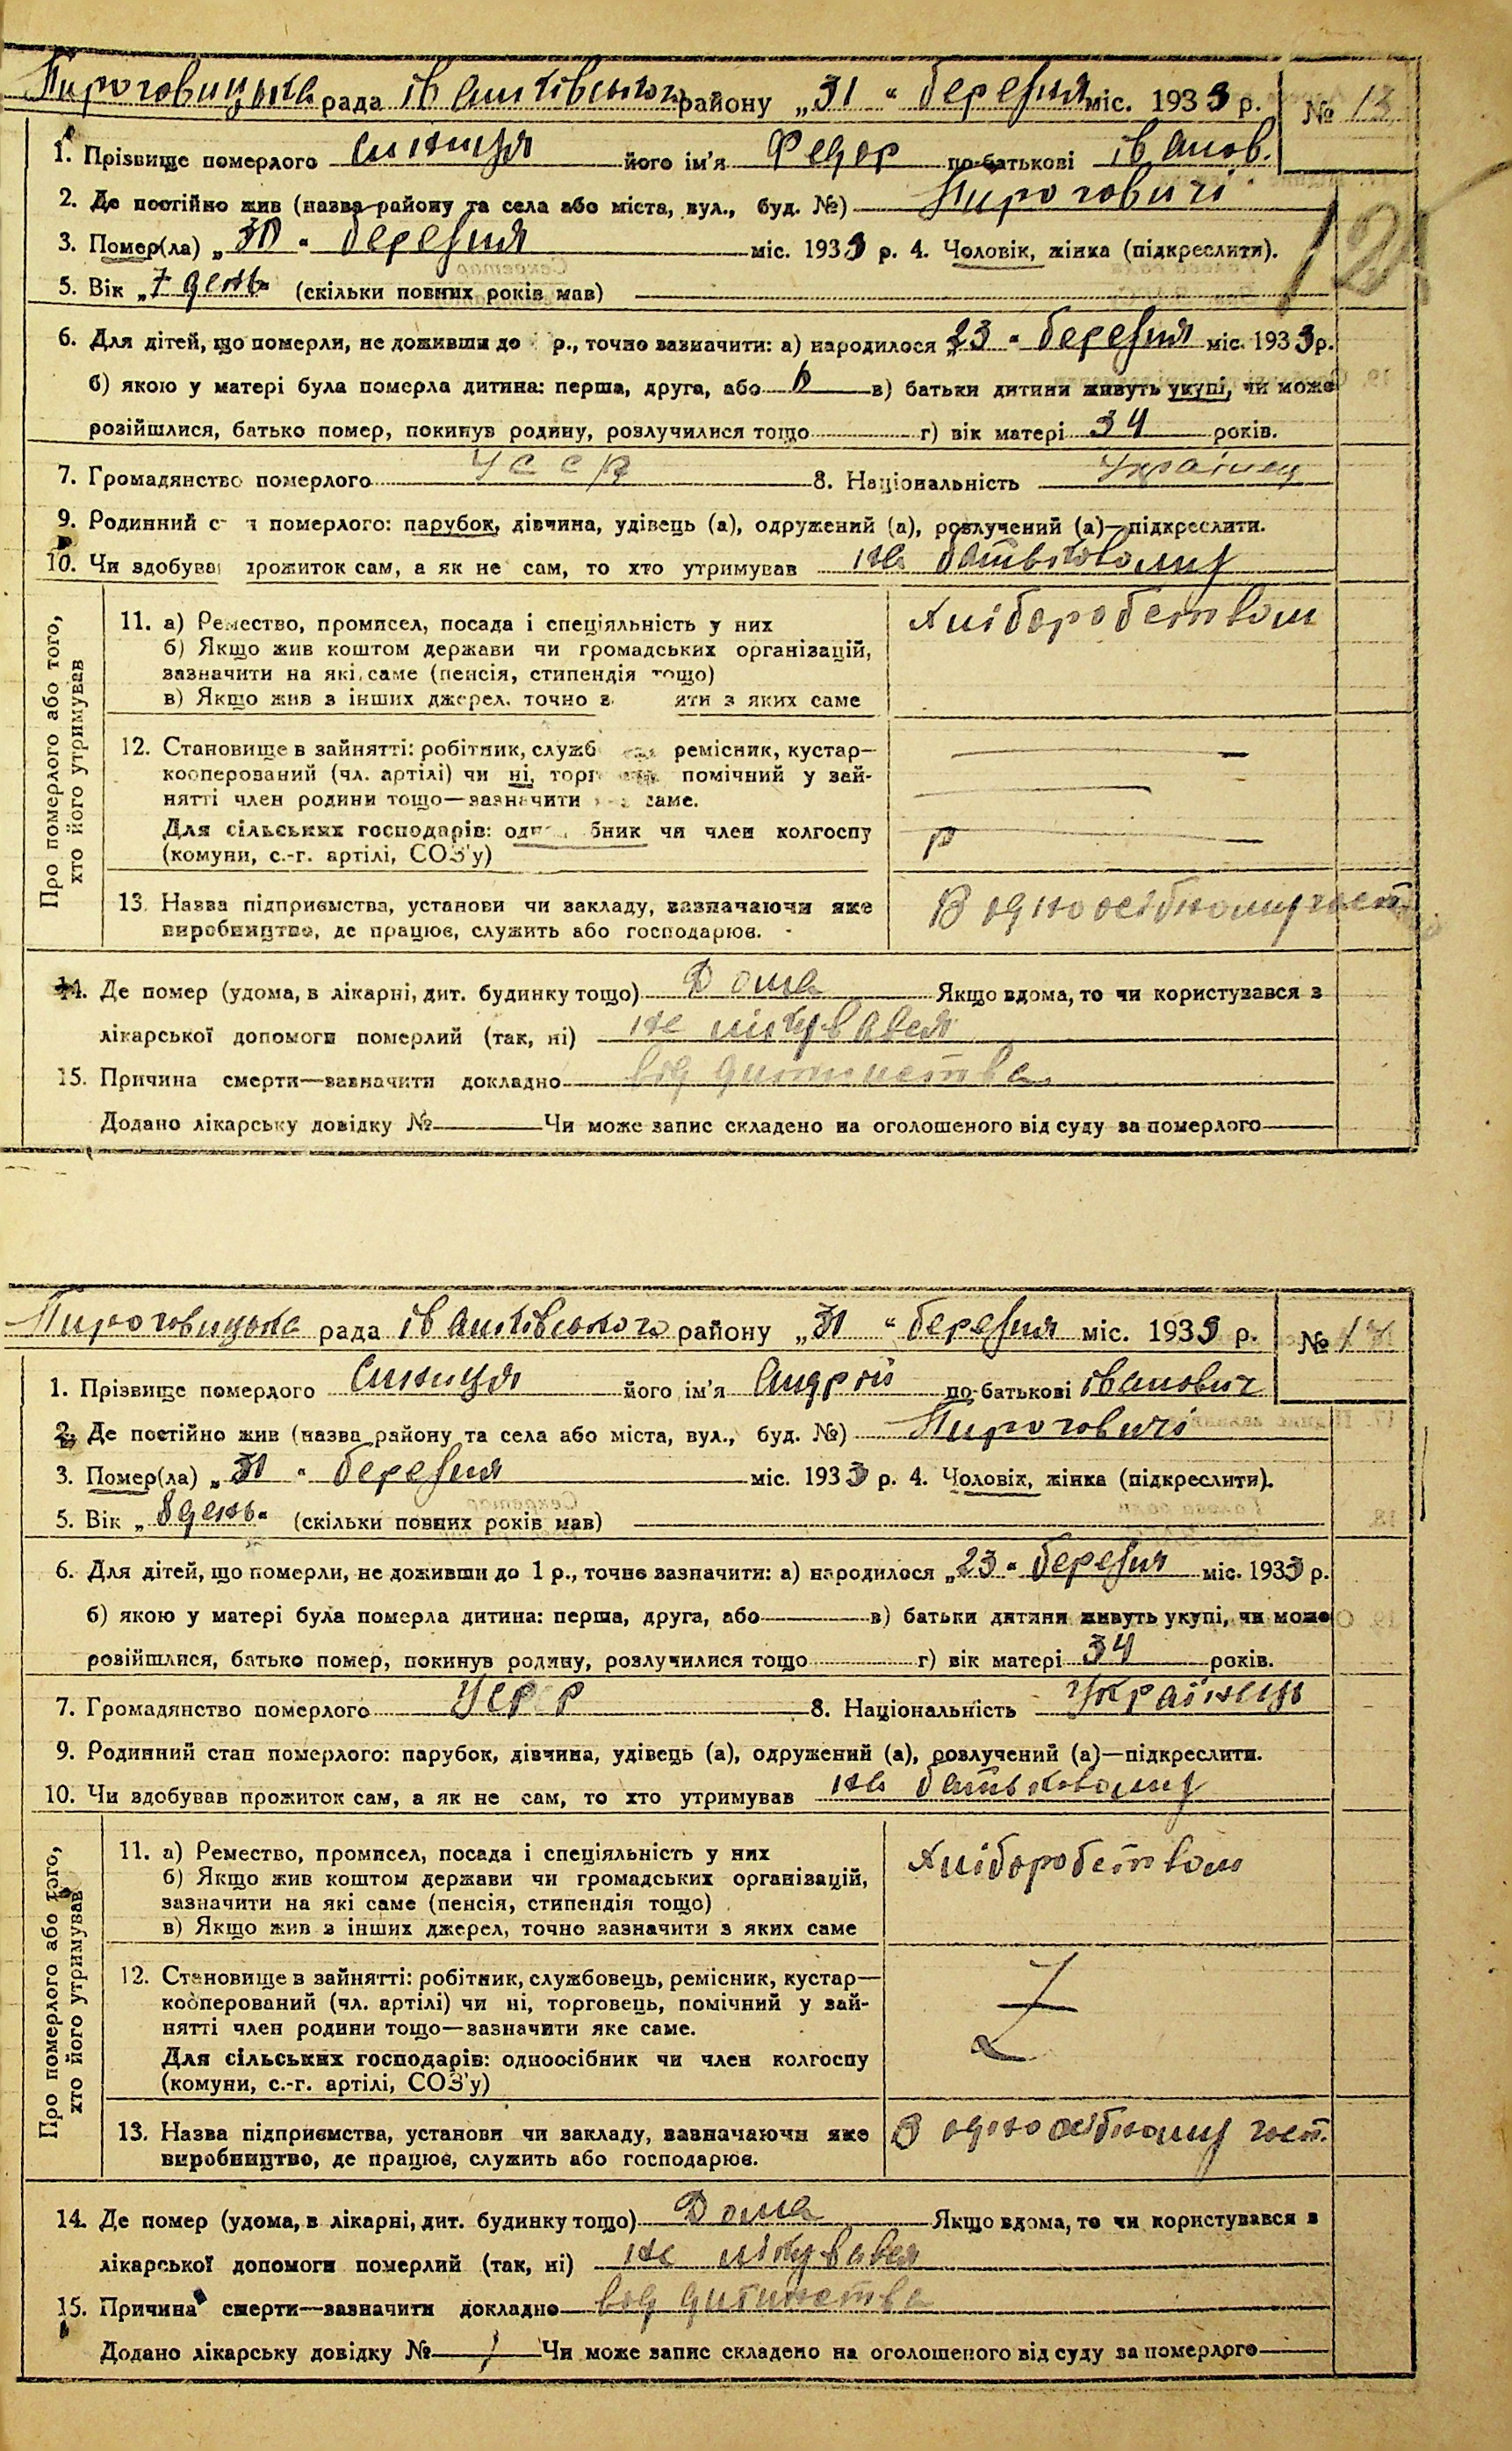 Пироговицька рада Іванківського району „31“ березня міс. 1933 р. № 13
1. Прізвище померлого Синиця його ім'я Федор по-батькові Іванов.
2. Де постійно жив (назва району та села або міста, вул., буд. №) Пироговичі
3. Помер(ла) „30“ березня міс. 1933 р. 4. Чоловік, жінка (підкреслити).
5. Вік „7 день“ (скільки повних років мав)
6. Для дітей, що померли, не доживши до р., точно зазначити: а) народилося „23“ березня міс. 1933 р.
б) якою у матері була померла дитина: перша, друга, або в) батьки дитини живуть укупі, чи може
розійшлися, батько помер, покинув родину, розлучилися тощо г) вік матері 34 років.
7. Громадянство померлого УССР 8. Національність Украінец
9. Родинний с н померлого: парубок, дівчина, удівець (а), одружений (а), розлучений (а)—підкреслити.
10. Чи здобував прожиток сам, а як не сам, то хто утримував на батьковому
Про померлого або того,
хто його утримував
11. а) Ремество, промисел, посада і спеціяльність у них Хліборобством
б) Якщо жив коштом держави чи громадських організацій,
зазначити на які саме (пенсія, стипендія тощо)
в) Якщо жив з інших джерел, точно з яти з яких саме
12. Становище в зайнятті: робітник, служб ремісник, кустар—
кооперований (чл. артілі) чи ні, торг помічний у зай-
нятті член родини тощо—зазначити саме.
Для сільських господарів: од бник чи член колгоспу
(комуни, с.-г. артілі, СОЗ'у)
13. Назва підприємства, установи чи закладу, зазначаючи яке В одноосібному
виробництво, де працює, служить або господарює.
14. Де помер (удома, в лікарні, дит. будинку тощо) Дома Якщо вдома, то чи користувався з
лікарської допомоги померлий (так, ні) не лікувався
15. Причина смерти—зазначити докладно вод дитинства
Додано лікарську довідку № Чи може запис складено на оголошеного від суду за померлого
Пироговицька рада Іванківського району „31“ березня міс. 1933 р. №
1. Прізвище померлого Синиця його ім'я Андрій по-батькові Іванович
2. Де постійно жив (назва району та села або міста, вул., буд. №) Пироговичі
3. Помер(ла) „31“ березня міс. 1933 р. 4. Чоловік, жінка (підкреслити).
5. Вік „8 день“ (скільки повних років мав)
6. Для дітей, що померли, не доживши до 1 р., точно зазначити: а) народилося „23“ березня міс. 1933 р.
б) якою у матері була померла дитина: перша, друга, або в) батьки дитини живуть укупі, чи може
розійшлися, батько помер, покинув родину, розлучилися тощо г) вік матері 34 років.
7. Громадянство померлого УСРР 8. Національність Українець
9. Родинний стан померлого: парубок, дівчина, удівець (а), одружений (а), розлучений (а)—підкреслити.
10. Чи здобував прожиток сам, а як не сам, то хто утримував на батьковому
Про померлого або того,
хто його утримував
11. а) Ремество, промисел, посада і спеціяльність у них Хліборобством
б) Якщо жив коштом держави чи громадських організацій,
зазначити на які саме (пенсія, стипендія тощо)
в) Якщо жив з інших джерел, точно зазначити з яких саме
12. Становище в зайнятті: робітник, службовець, ремісник, кустар—
кооперований (чл. артілі) чи ні, торговець, помічний у зай-
нятті член родини тощо—зазначити яке саме.
Для сільських господарів: одноосібник чи член колгоспу
(комуни, с.-г. артілі, СОЗ'у)
13. Назва підприємства, установи чи закладу, зазначаючи яке В одноосібному госп.
виробництво, де працює, служить або господарює.
14. Де помер (удома, в лікарні, дит. будинку тощо) Дома Якщо вдома, то чи користувався з
лікарської допомоги померлий (так, ні) не лікувався
15. Причина смерти—зазначити докладно вод дитинства
Додано лікарську довідку № Чи може запис складено на оголошеного від суду за померлого